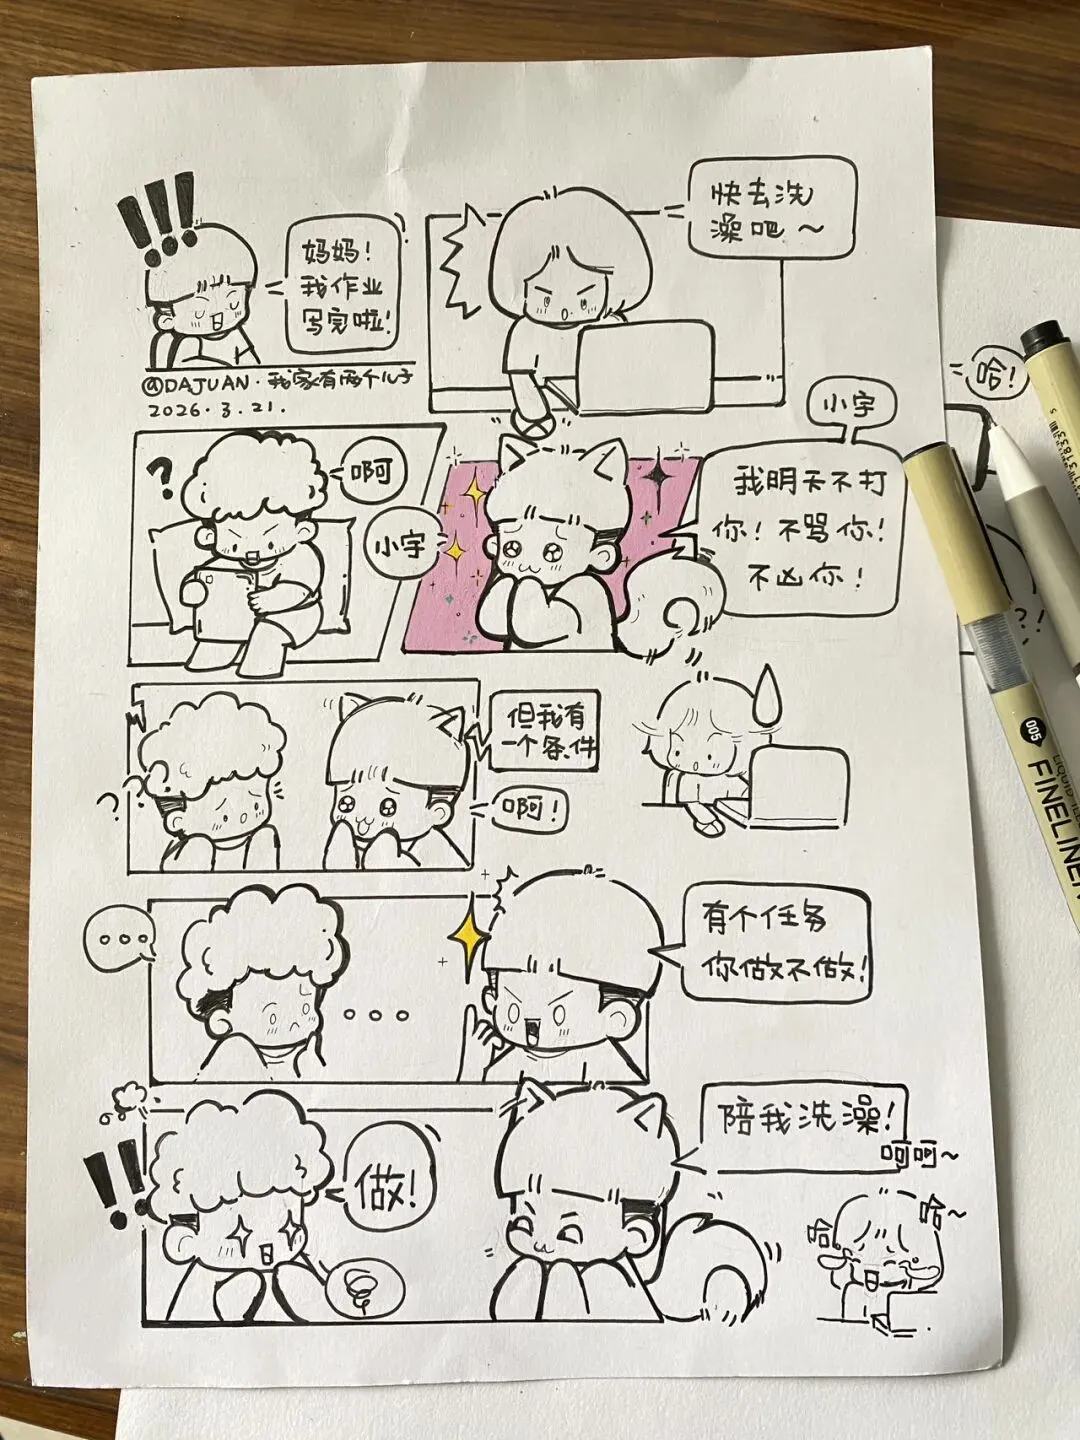 !!!
妈妈！
我作业
写完啦！
快去洗
澡吧～
@DAJUAN·我家有两个儿子
2026.3.21.
?
啊
小宇
小宇
我明天不打
你！不骂你！
不凶你！
???
但我有
一个条件
啊！
有个任务
你做不做！
!!
做！
陪我洗澡！
呵呵～
哈
哈～
哈！
?!
005
FINELINER